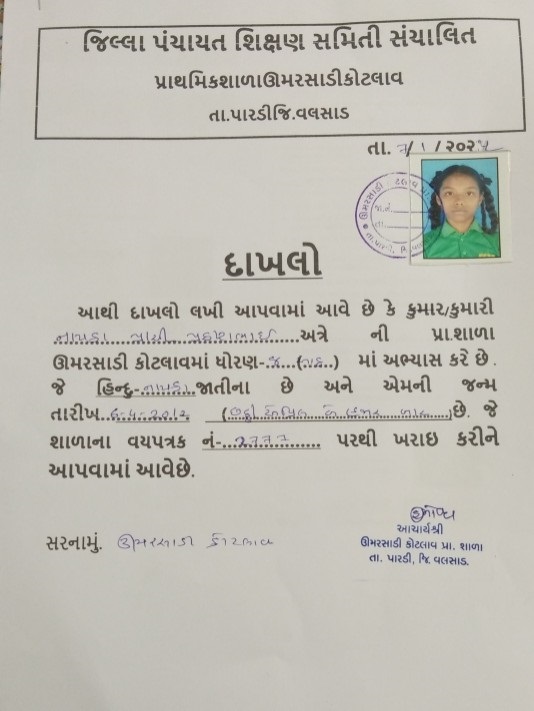 જિલ્લા પંચાયત શિક્ષણ સમિતી સંચાલિત
પ્રાથમિકશાળાઊમરસાડીકોટલાવ
તા.પારડીજિ.વલસાડ
તા. /૧ /૨૦૨
દાખલો
આથી દાખલો લખી આપવામાં આવે છે કે કુમાર/કુમારી
નાયકા ......અત્રે ની પ્રા.શાળા
ઊમરસાડી કોટલાવમાં ધોરણ- માં અભ્યાસ કરે છે .
જે હિન્દુ-નાયકા જાતીના છે અને એમની જન્મ
તારીખ. છે. જે
શાળાના વયપત્રક નં- પરથી ખરાઇ કરીને
આપવામાં આવેછે.
આચાર્યશ્રી
ઊમરસાડી કોટલાવ પ્રા. શાળા
તા. પારડી, જિ. વલસાડ.
સરનામું. ઊમરસાડી કોટલાવ